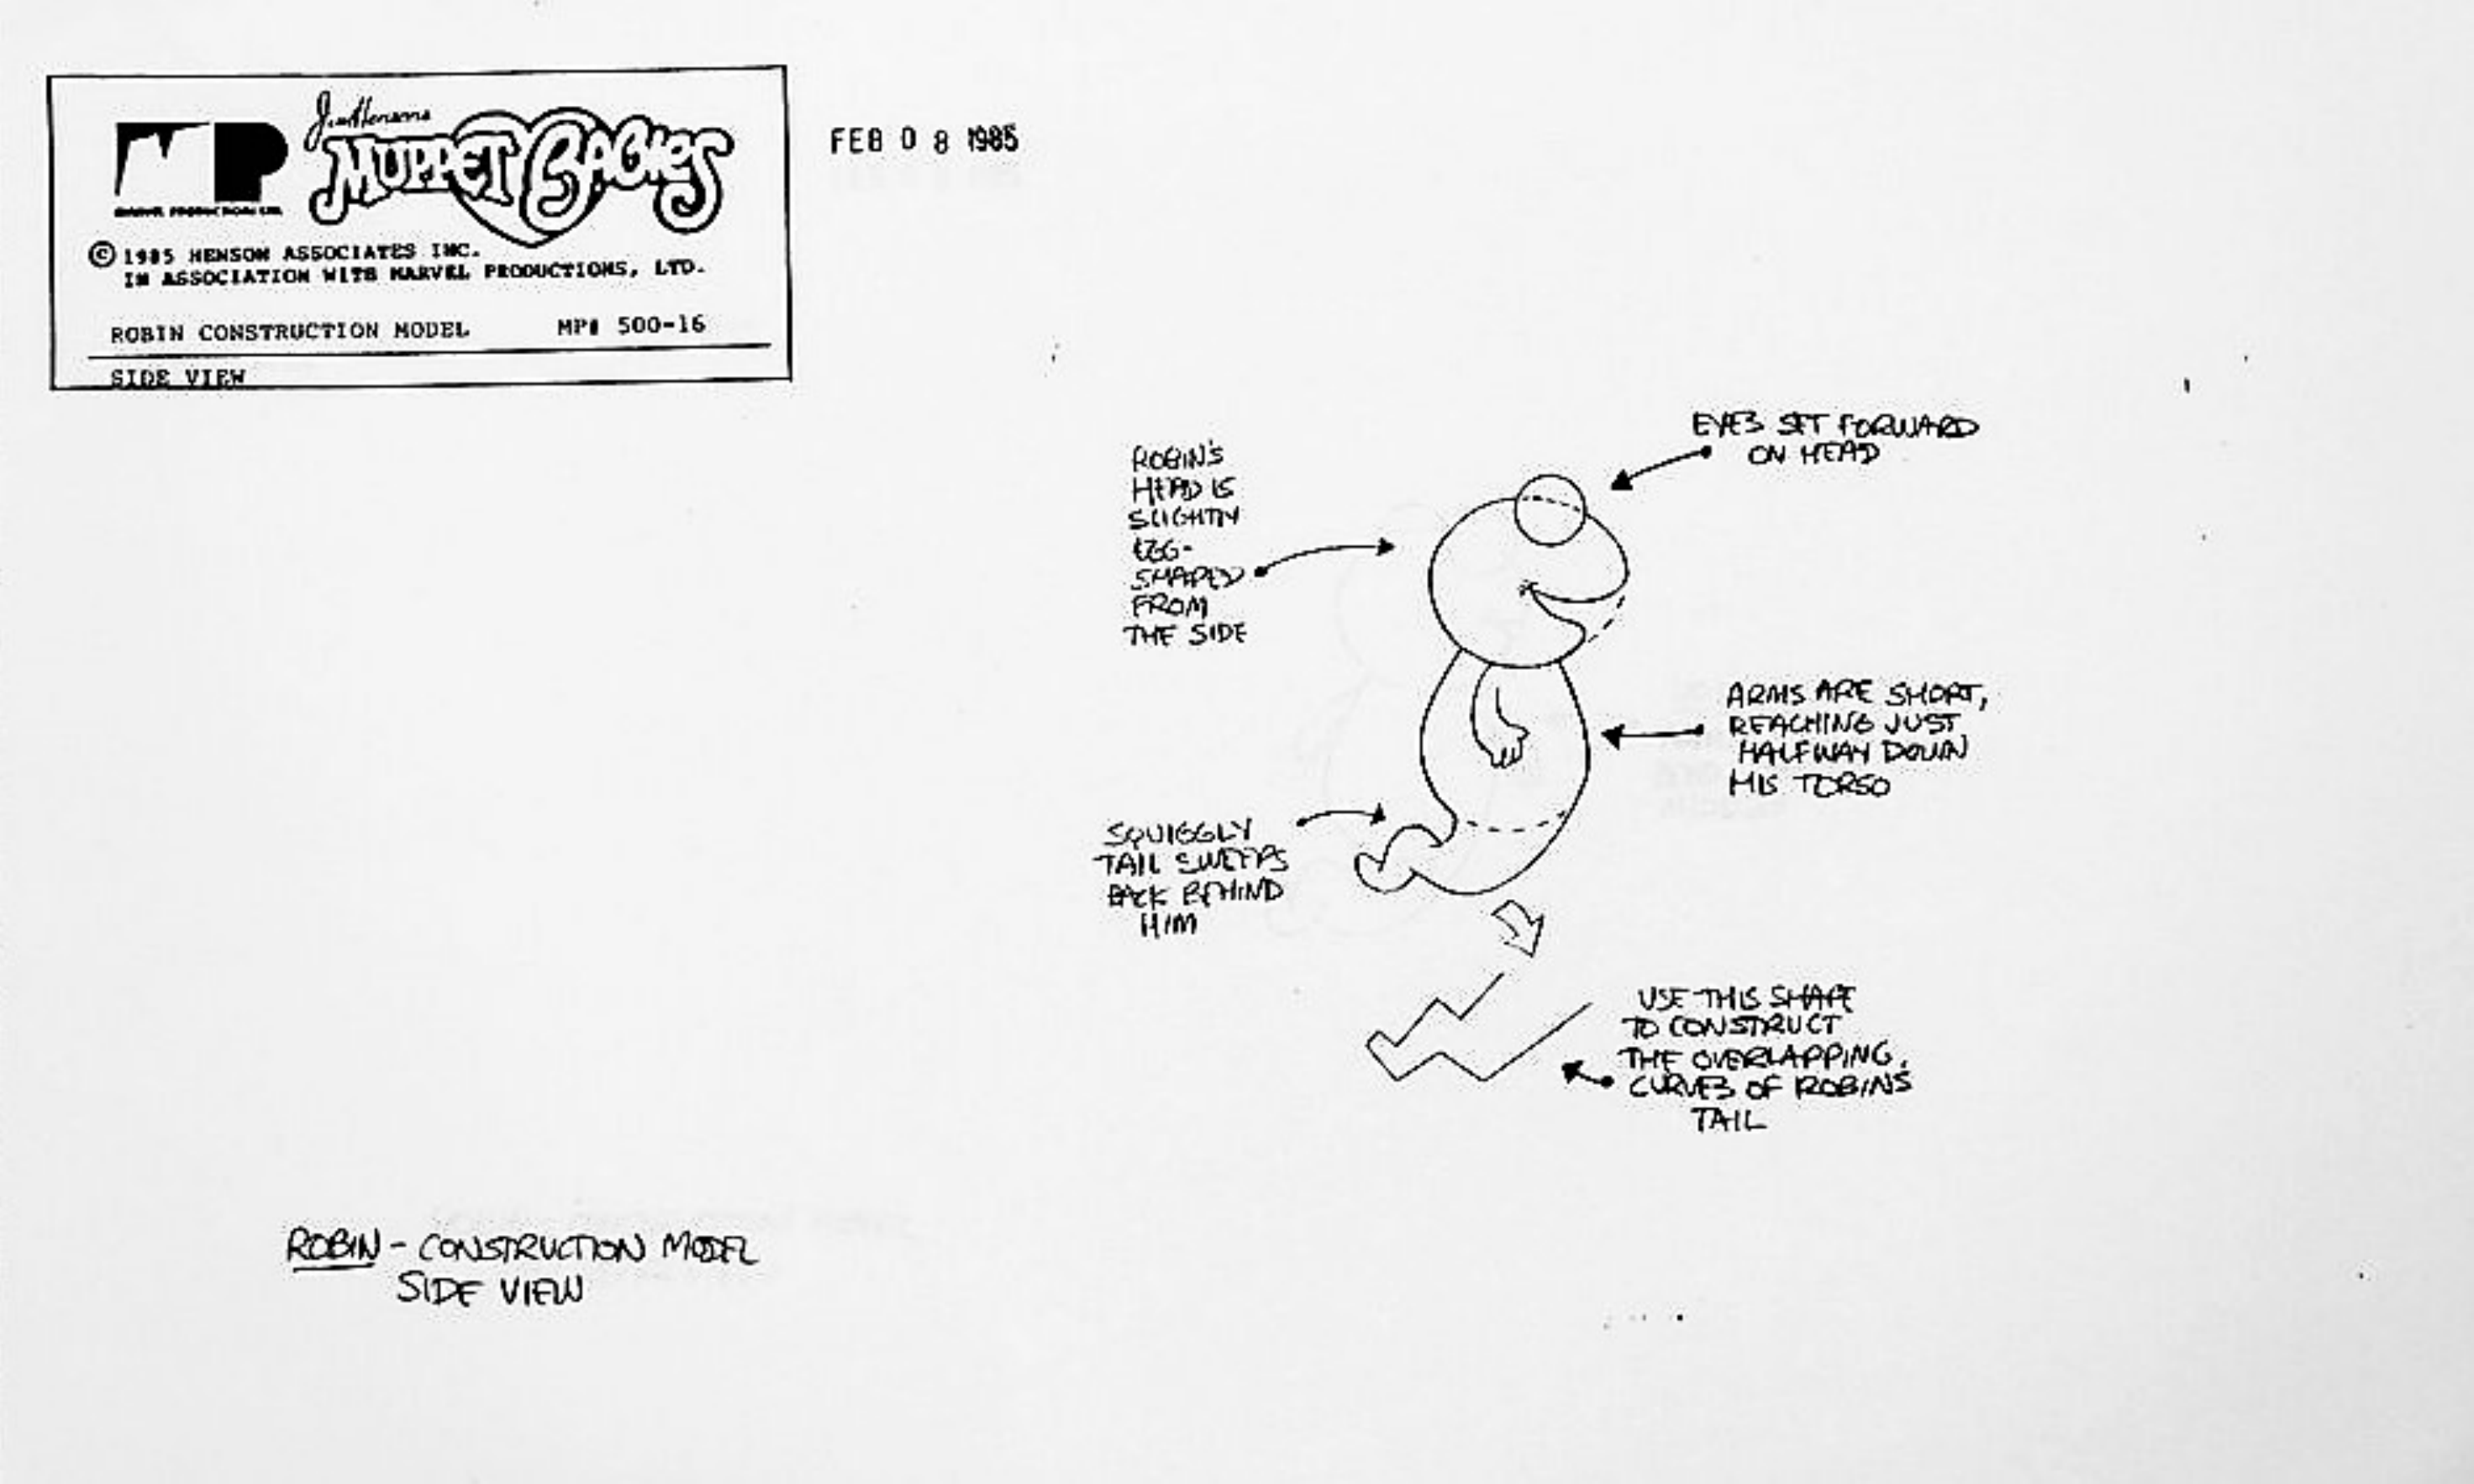 Jim Henson's
MUPPET BABIES
MP
MARVEL PRODUCTIONS LTD.
© 1985 HENSON ASSOCIATES INC.
IN ASSOCIATION WITH MARVEL PRODUCTIONS, LTD.
ROBIN CONSTRUCTION MODEL MP# 500-16
SIDE VIEW
FEB 08 1985
EYES SET FORWARD
ON HEAD
ROBIN'S
HEAD IS
SLIGHTLY
EGG-
SHAPED
FROM
THE SIDE
ARMS ARE SHORT,
REACHING JUST
HALFWAY DOWN
HIS TORSO
SQUIGGLY
TAIL SWEEPS
BACK BEHIND
HIM
USE THIS SHAPE
TO CONSTRUCT
THE OVERLAPPING
CURVES OF ROBIN'S
TAIL
ROBIN - CONSTRUCTION MODEL
SIDE VIEW